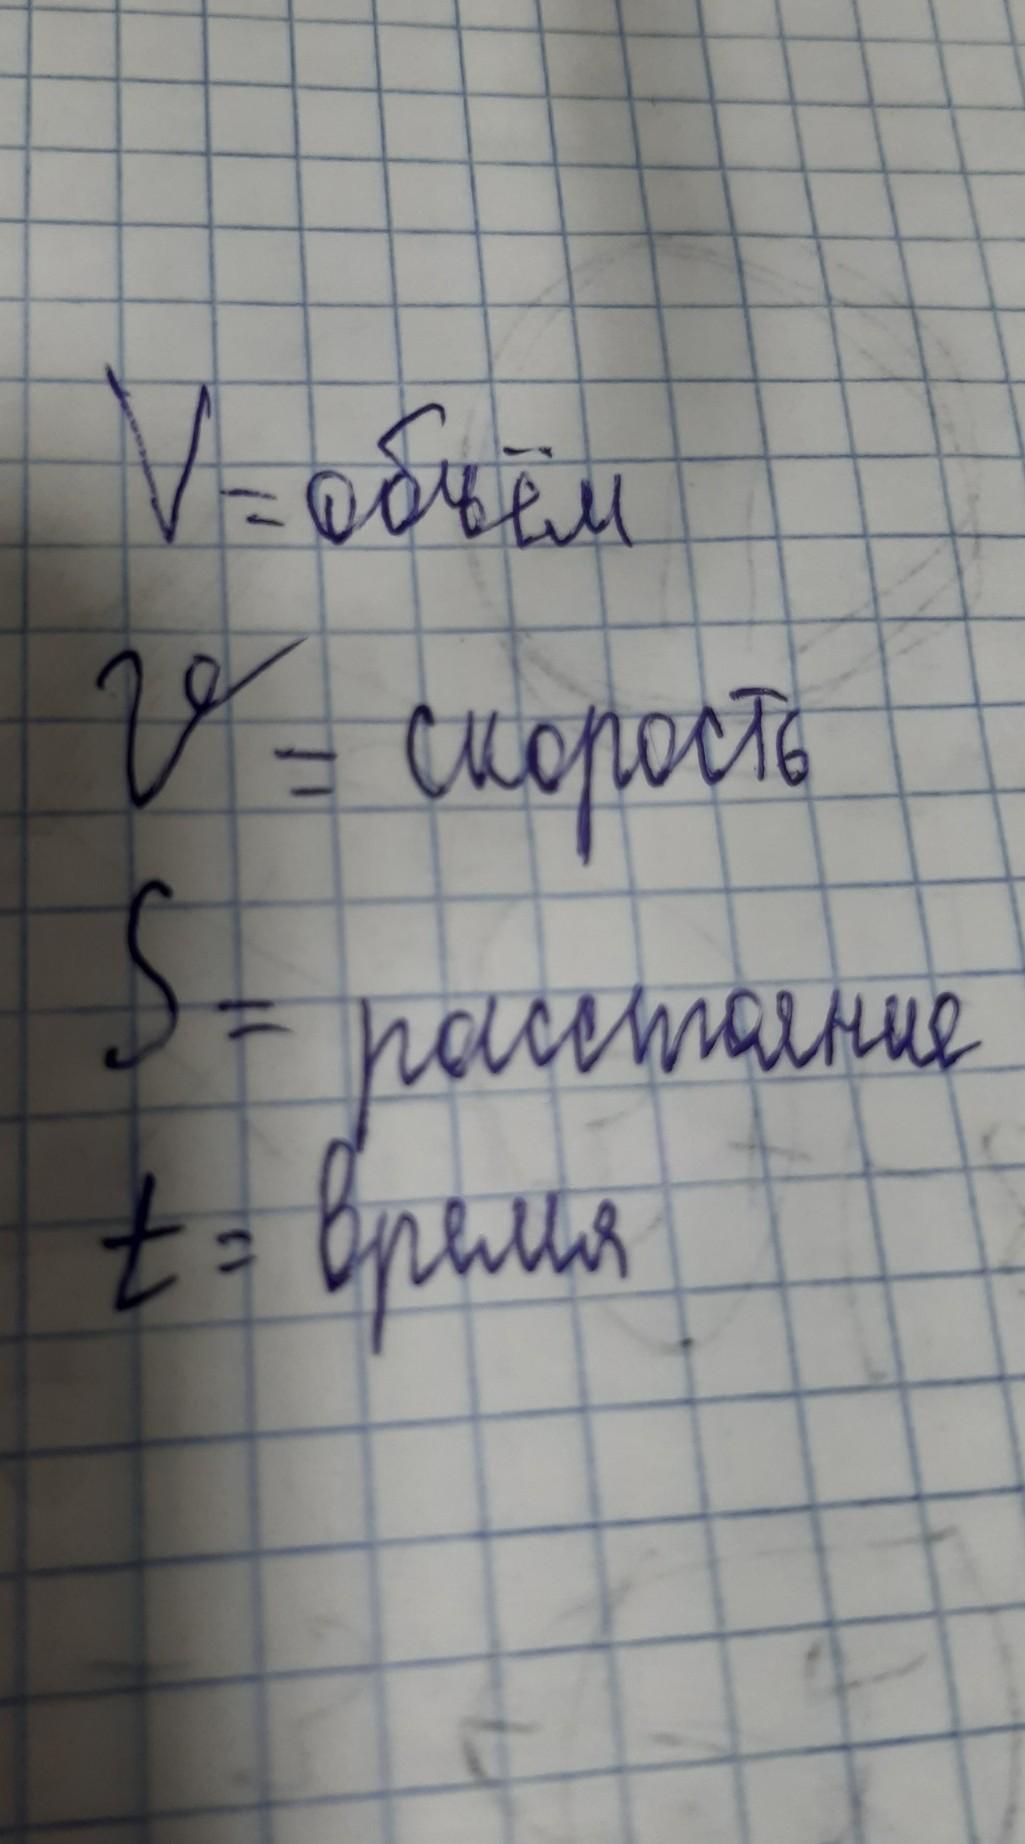 V = объём
v = скорость
S = расстояние
t = время